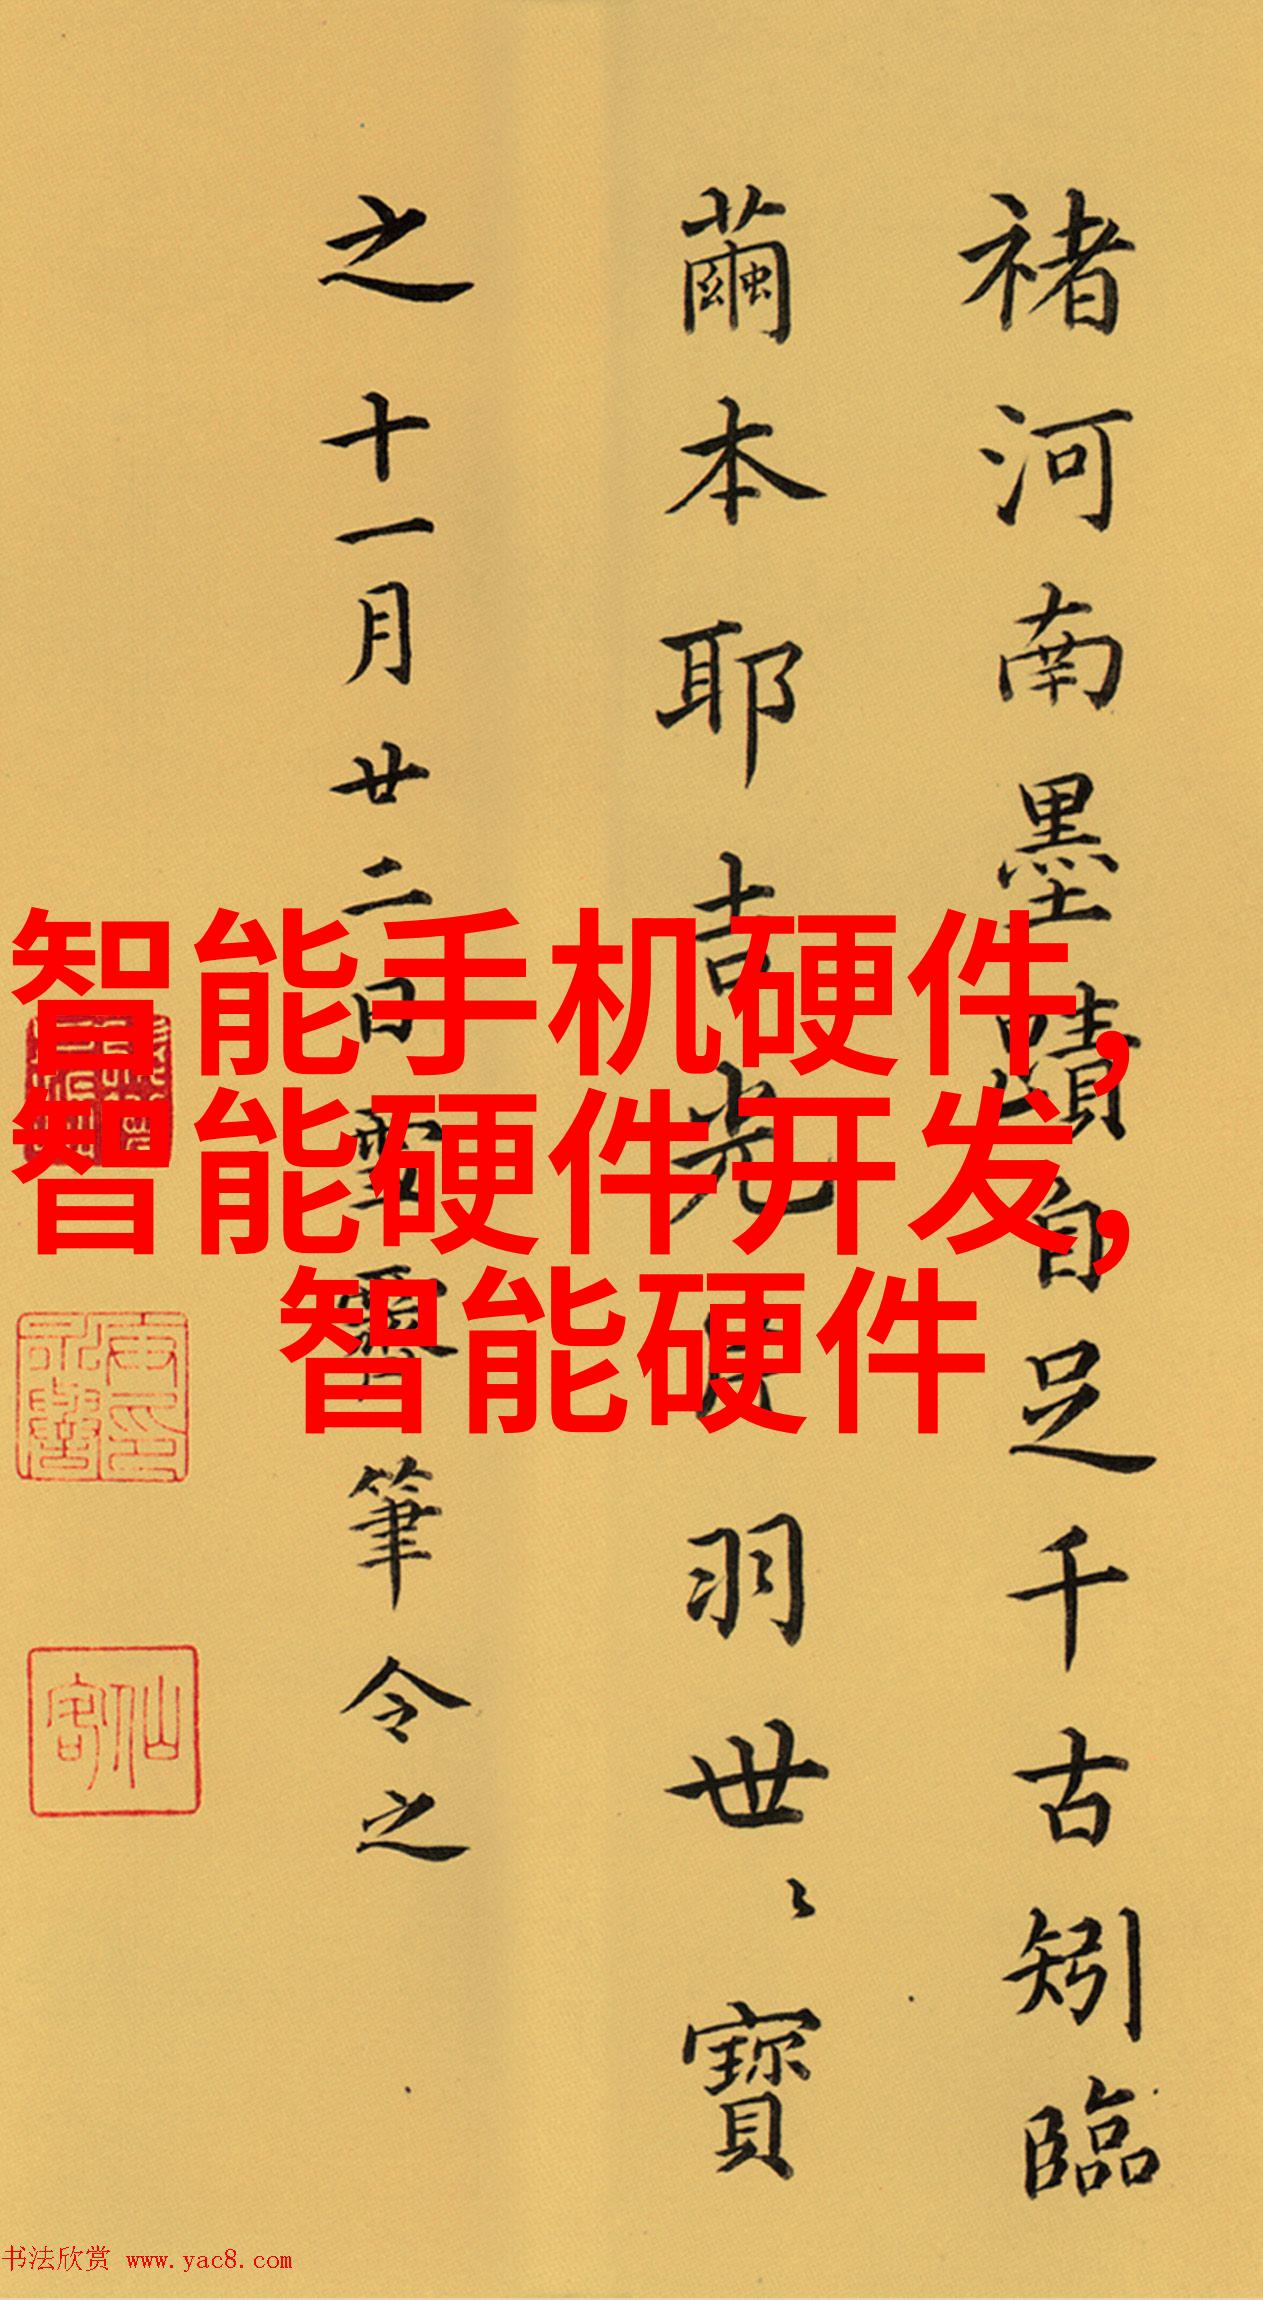 褚河南墨蹟自足千古矧臨
繭本耶吉光片羽世〻寶
之十一月廿二日雪霽筆令之
智能手机硬件,
智能硬件开发,
智能硬件
仙客
书法欣赏 www.yac8.com